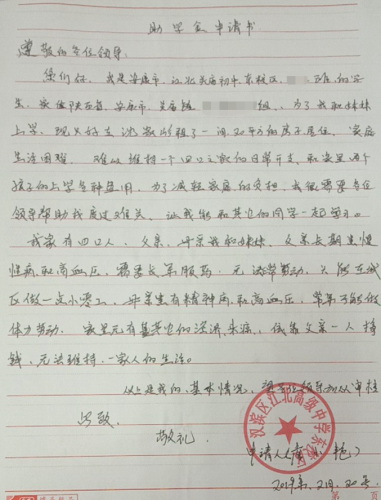 助学金申请书
尊敬的各位领导:
你们好,我是安康市,江北高级初中东校区,
生,家住陕西省,安康市,关庙镇 组。为了我和妹妹
上学,现父母在 租了一间20平方的房子居住,家庭
生活困难,难以维持一个四口之家的日常开支,和家里两个
孩子的上学各种费用,为了减轻家庭的负担,我很需要各位
领导帮助我度过难关,让我能和其他的同学一起学习。
我家有四口人,父亲,母亲我和妹妹,父亲长期患慢
性病和高血压,需要长年服药,无法劳动,只能在城
区做一点小零工,母亲患有精神病和高血压,常年不能做
体力劳动,家里无有其他的经济来源,仅靠父亲一人挣
钱,无法维持一家人的生活。
以上是我的基本情况,望各位领导加以审核
此致
敬礼
汉滨区江北高级中学东校区
申请人 艳
2019年.2月.20号.